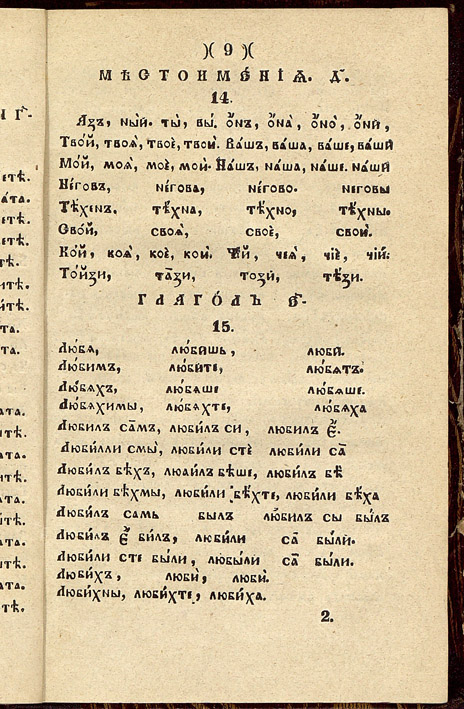 )( 9 )(
МѢСТОИМЕ́НІѦ. Д҃.
14.
Азъ, ный. ты̀, вы̀. ѻ҆́нъ, ѻ҆на̀, ѻ҆но̀, ѻ҆нѝ,
Тво́й, твоѧ̀, твоѐ, твоѝ. Ва́шъ, ва́ша, ва́ше, ва́ши
Мо́й, моѧ̀, моѐ, моѝ. На́шъ, на́ша, на́ше. на́ши
Не́говъ, не́гова, не́гово. не́говы
Тѣ́хенъ. тѣ́хна, тѣ́хно, тѣ́хны.
Сво́й, своѧ̀, своѐ, своѝ.
Ко́й, коѧ̀, коѐ, коѝ. Чі́й, чеѧ̀, чіѐ, чіѝ:
То́йзи, та́зи, тозѝ, тѣ́зи.
ГЛАГО́ЛЪ В҃.
15.
Лю́бѧ, лю́бишь, любѝ.
Лю́бимъ, лю́бите, лю́бѧтъ.
Лю́бѧхъ, лю́бѧше лю́бѧше.
Лю́бѧхимы, лю́бѧхте, лю́бѧха
Любилъ са́мъ, люби́лъ си, люби́лъ Е҆́.
Люби́лли смы̀, люби́ли стѐ люби́ли са̀
Люби́лъ бѣ́хъ, люаилъ бѣ́ше, люби́лъ бѣ̀
Люби́ли бѣ́хмы, люби́ли бѣ́хте, люби́ли бѣ́ха
Люби́лъ самь былъ лю́билъ сы бы́лъ
Люби́лъ Е҆́ би́лъ, люби́ли са̀ бы́ли.
Люби́ли сте бы́ли, любы́ли са̀ бы́ли.
Люби́хъ, любѝ, любѝ.
Люби́хны, люби́хте, люби́ха.
2.
ѣтѣ.
ата.
етѣ.
етѣ.
тѣ.
итѣ.
итѣ.
ата.
та.
ата.
итѣ.
та.
итѣ.
ата.
итѣ.
ата.
итѣ.
ата.
тѣ.